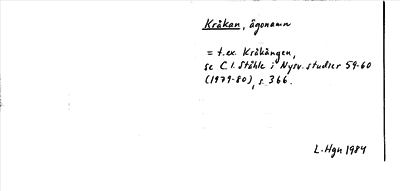 Kråkan, ägonamn
= t.ex. Kråkängen,
se C.I. Ståhle i Nysv. studier 59-60
(1979-80), s. 366.
L. Hgn 1984